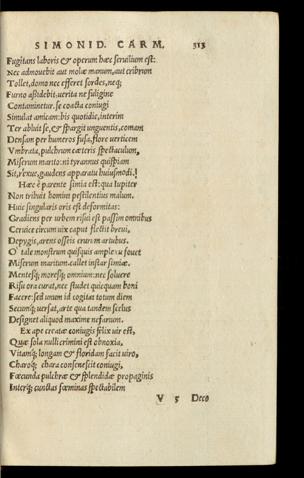 SIMONID. CARM. 313
Fugitans laboris & operum hæc seruilium est:
Nec admouebit aut molæ manum, aut cribrum
Tollet, domo nec efferet sordes, neq;
Furno assidebit: uerita ne fuligine
Contaminetur. se coacta coniugi
Simulat amicam: bis quotidie, interim
Ter abluit se, & spargit unguentis, comam
Densam per humeros fusa, flore uerticem
Vmbrata, pulchrum cæteris spectaculum,
Miserum marito: ni tyrannus quispiam
Sit, rexue, gaudens apparatu huiusmodi.
Hæc è parente simia est: qua Iupiter
Non tribuit homini pestilentius malum.
Huic singularis oris est deformitas:
Gradiens per urbem risui est passim omnibus
Ceruice circum uix caput flectit breui,
Depygis, arens osseis crurum artubus.
O tale monstrum quisquis amplexu fouet
Miserum maritum. callet instar simiæ.
Mentesq; moresq; omnium: nec soluere
Risu ora curat, nec studet quicquam boni
Facere: sed unum id cogitat totum diem
Secumq; uersat, arte qua tandem scelus
Designet aliquod maxime nefarium.
Ex ape creatæ coniugis felix uir est,
Quæ sola nulli crimini est obnoxia,
Vitamq; longam & floridam facit uiro,
Charoq; chara consenescit coniugi,
Fœcunda pulchræ & splendidæ propaginis
Interq; cunctas fœminas spectabilem
V 5 Deco